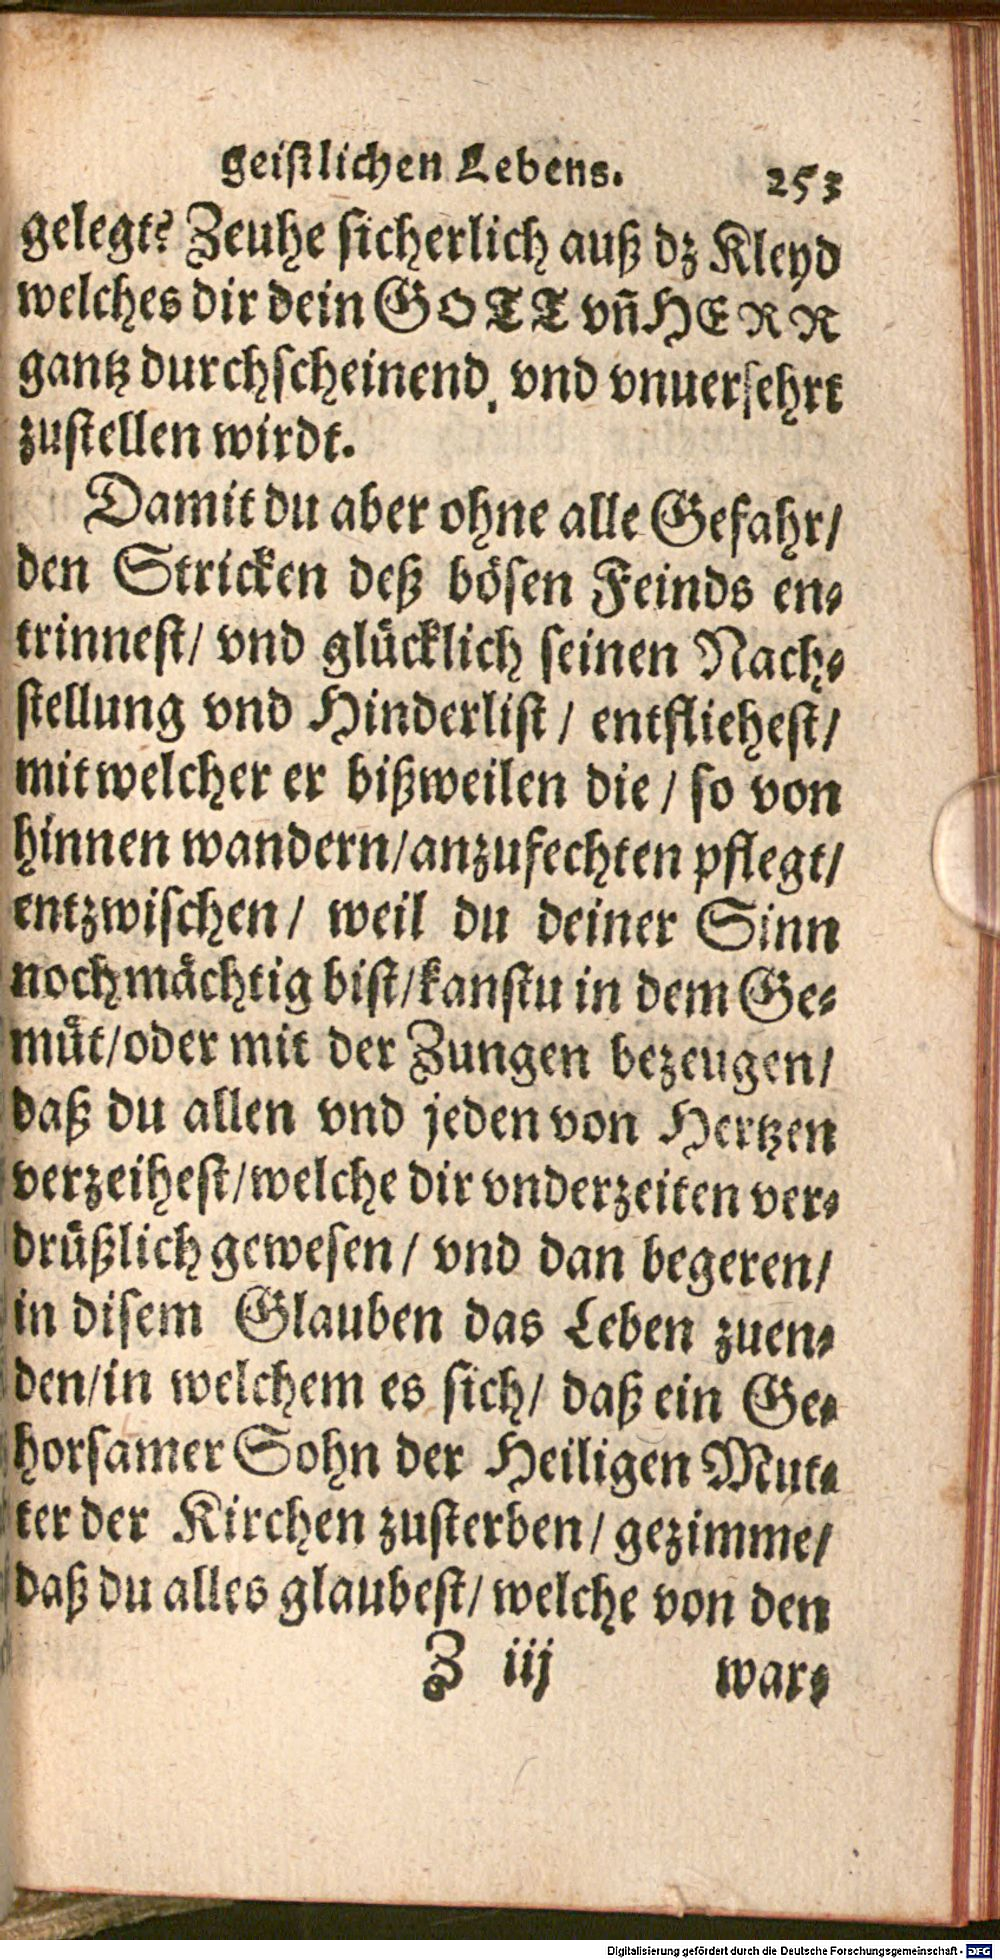 geistlichen Lebens. 253
gelegt? Zeuhe sicherlich auß dz Kleyd
welches dir dein GOTT vñ HERR
gantz durchscheinend, vnd vnuersehrt
zustellen wirdt.
Damit du aber ohne alle Gefahr/
den Stricken deß bösen Feinds en-
trinnest/ vnd glücklich seinen Nach-
stellung vnd Hinderlist/ entfliehest/
mit welcher er bißweilen die/ so von
hinnen wandern/anzufechten pflegt/
entzwischen/ weil du deiner Sinn
noch mächtig bist/kanstu in dem Ge-
müt/oder mit der Zungen bezeugen/
daß du allen vnd jeden von Hertzen
verzeihest/welche dir vnderzeiten ver-
drüßlich gewesen/ vnd dan begeren/
in disem Glauben das Leben zuen-
den/in welchem es sich/ daß ein Ge-
horsamer Sohn der Heiligen Mut-
ter der Kirchen zusterben/ gezimme/
daß du alles glaubest/ welche von den
Z iij war-
Digitalisierung gefördert durch die Deutsche Forschungsgemeinschaft - DFG